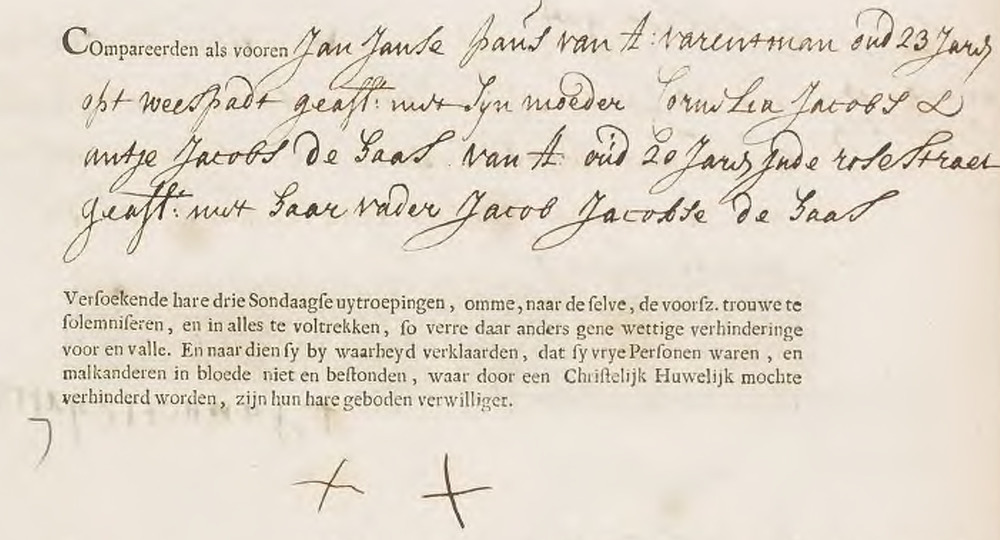 Compareerden als vooren Jan Janse paus van A: varentman oud 23 Jaar
opt weespadt geasst: met Syn moeder Cornelia Jacobs &
antje Jacobs de Haas van A: oud 20 Jaar Jnde rosestraet
geasst: met Haar vader Jacob Jacobse de Haas
Versoekende hare drie Sondaagse uytroepingen, omme, naar de selve, de voorsz. trouwe te
solemniseren, en in alles te voltrekken, so verre daar anders gene wettige verhinderinge
voor en valle. En naar dien sy by waarheyd verklaarden, dat sy vrye Personen waren, en
malkanderen in bloede niet en bestonden, waar door een Christelijk Huwelijk mochte
verhinderd worden, zijn hun hare geboden verwilliget.